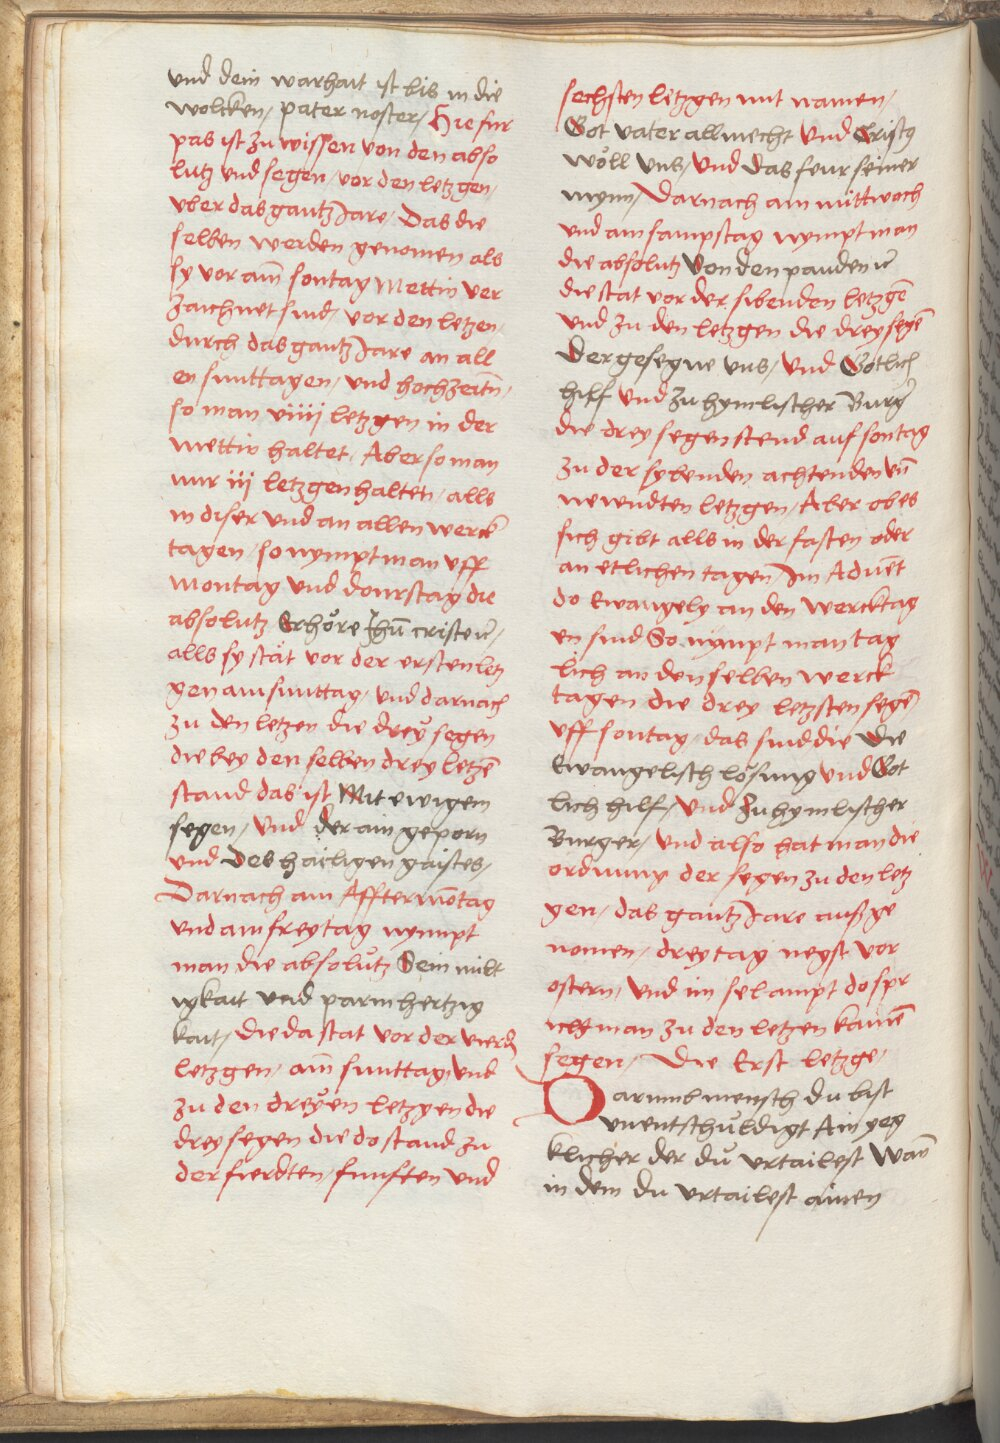 und dein warhait ist bis in die
wolcken / pater noster / Hie fur
pas ist zu wissen von den abso
lutz und segen / vor den letzgen /
vber das gantz Jare / Das die
selben werden genomen als
sy vor am̄ sontag Mettin ver
zaichnet sind / vor den letzen /
durch das gantz Jare an all
en sunttagen / und hochzeitn̄ /
so man viiij letzgen in der
mettin haltet / Aber so man
nur iij letzgen halten / alls
in diser und an allen werck
tagen / so nympt man vff
Montag und donrstag die
absolutz Erhöre Jhū criste
alls sy stät vor der ersten letz
gen am sunttag / und darnach
zu den letzen die drey segen
die bey den selben drey letzē
stand das ist Mit ewigem
segen / und der ain geporn
und Des hailigen gaistes /
Darnach am Afftermōtag
und am freytag nympt
man die absolutz Sein milt
igkait und parmhertzig
kait / die da stat vor der vierd
letzgen / am̄ sunttag und
zu den dreyen letzgen die
drey segen die do stand zu
der fierdten / funften und
sechsten letzgen mit namen /
Got vater allmecht und Cristꝰ
wöll uns / und das feur seiner
mynn / Darnach am mittwoch
und am sampstag nympt man
die absolutz Von den panden
die stat vor der sibenden letzgē
und zu den letzgen die drey segē
Der gesegne uns / und Gotlich
hilff und zu hymlischer Burg
die drey segen stend auf sontag
zu der sybenden achtenden un̄
newndten letzgen / Aber ob es
sich gibt alls in der fasten oder
an etlichen tagen / Im Aduēt
do Ewangely an den wercktag
en sind So nympt man tag
lich an den selben werck
tagen die drey letzsten segē
vff sontag / das sind die Die
Ewangelisch lösung und Got
lich hilf / und Zu hymlischer
Burger / und also hat man die
ordnung der segen zu den letz
gen / das gantz Jare auß ge
nomen / drey tag negst vor
ostern / und im selampt do spr
icht man zu den letzen kainē
segen / Die Erst letzge /
Darumb mensch du bist
vnentschuldigt Ain yeg
klicher der du urtailest Wan̄
in dem du urtailest ainen